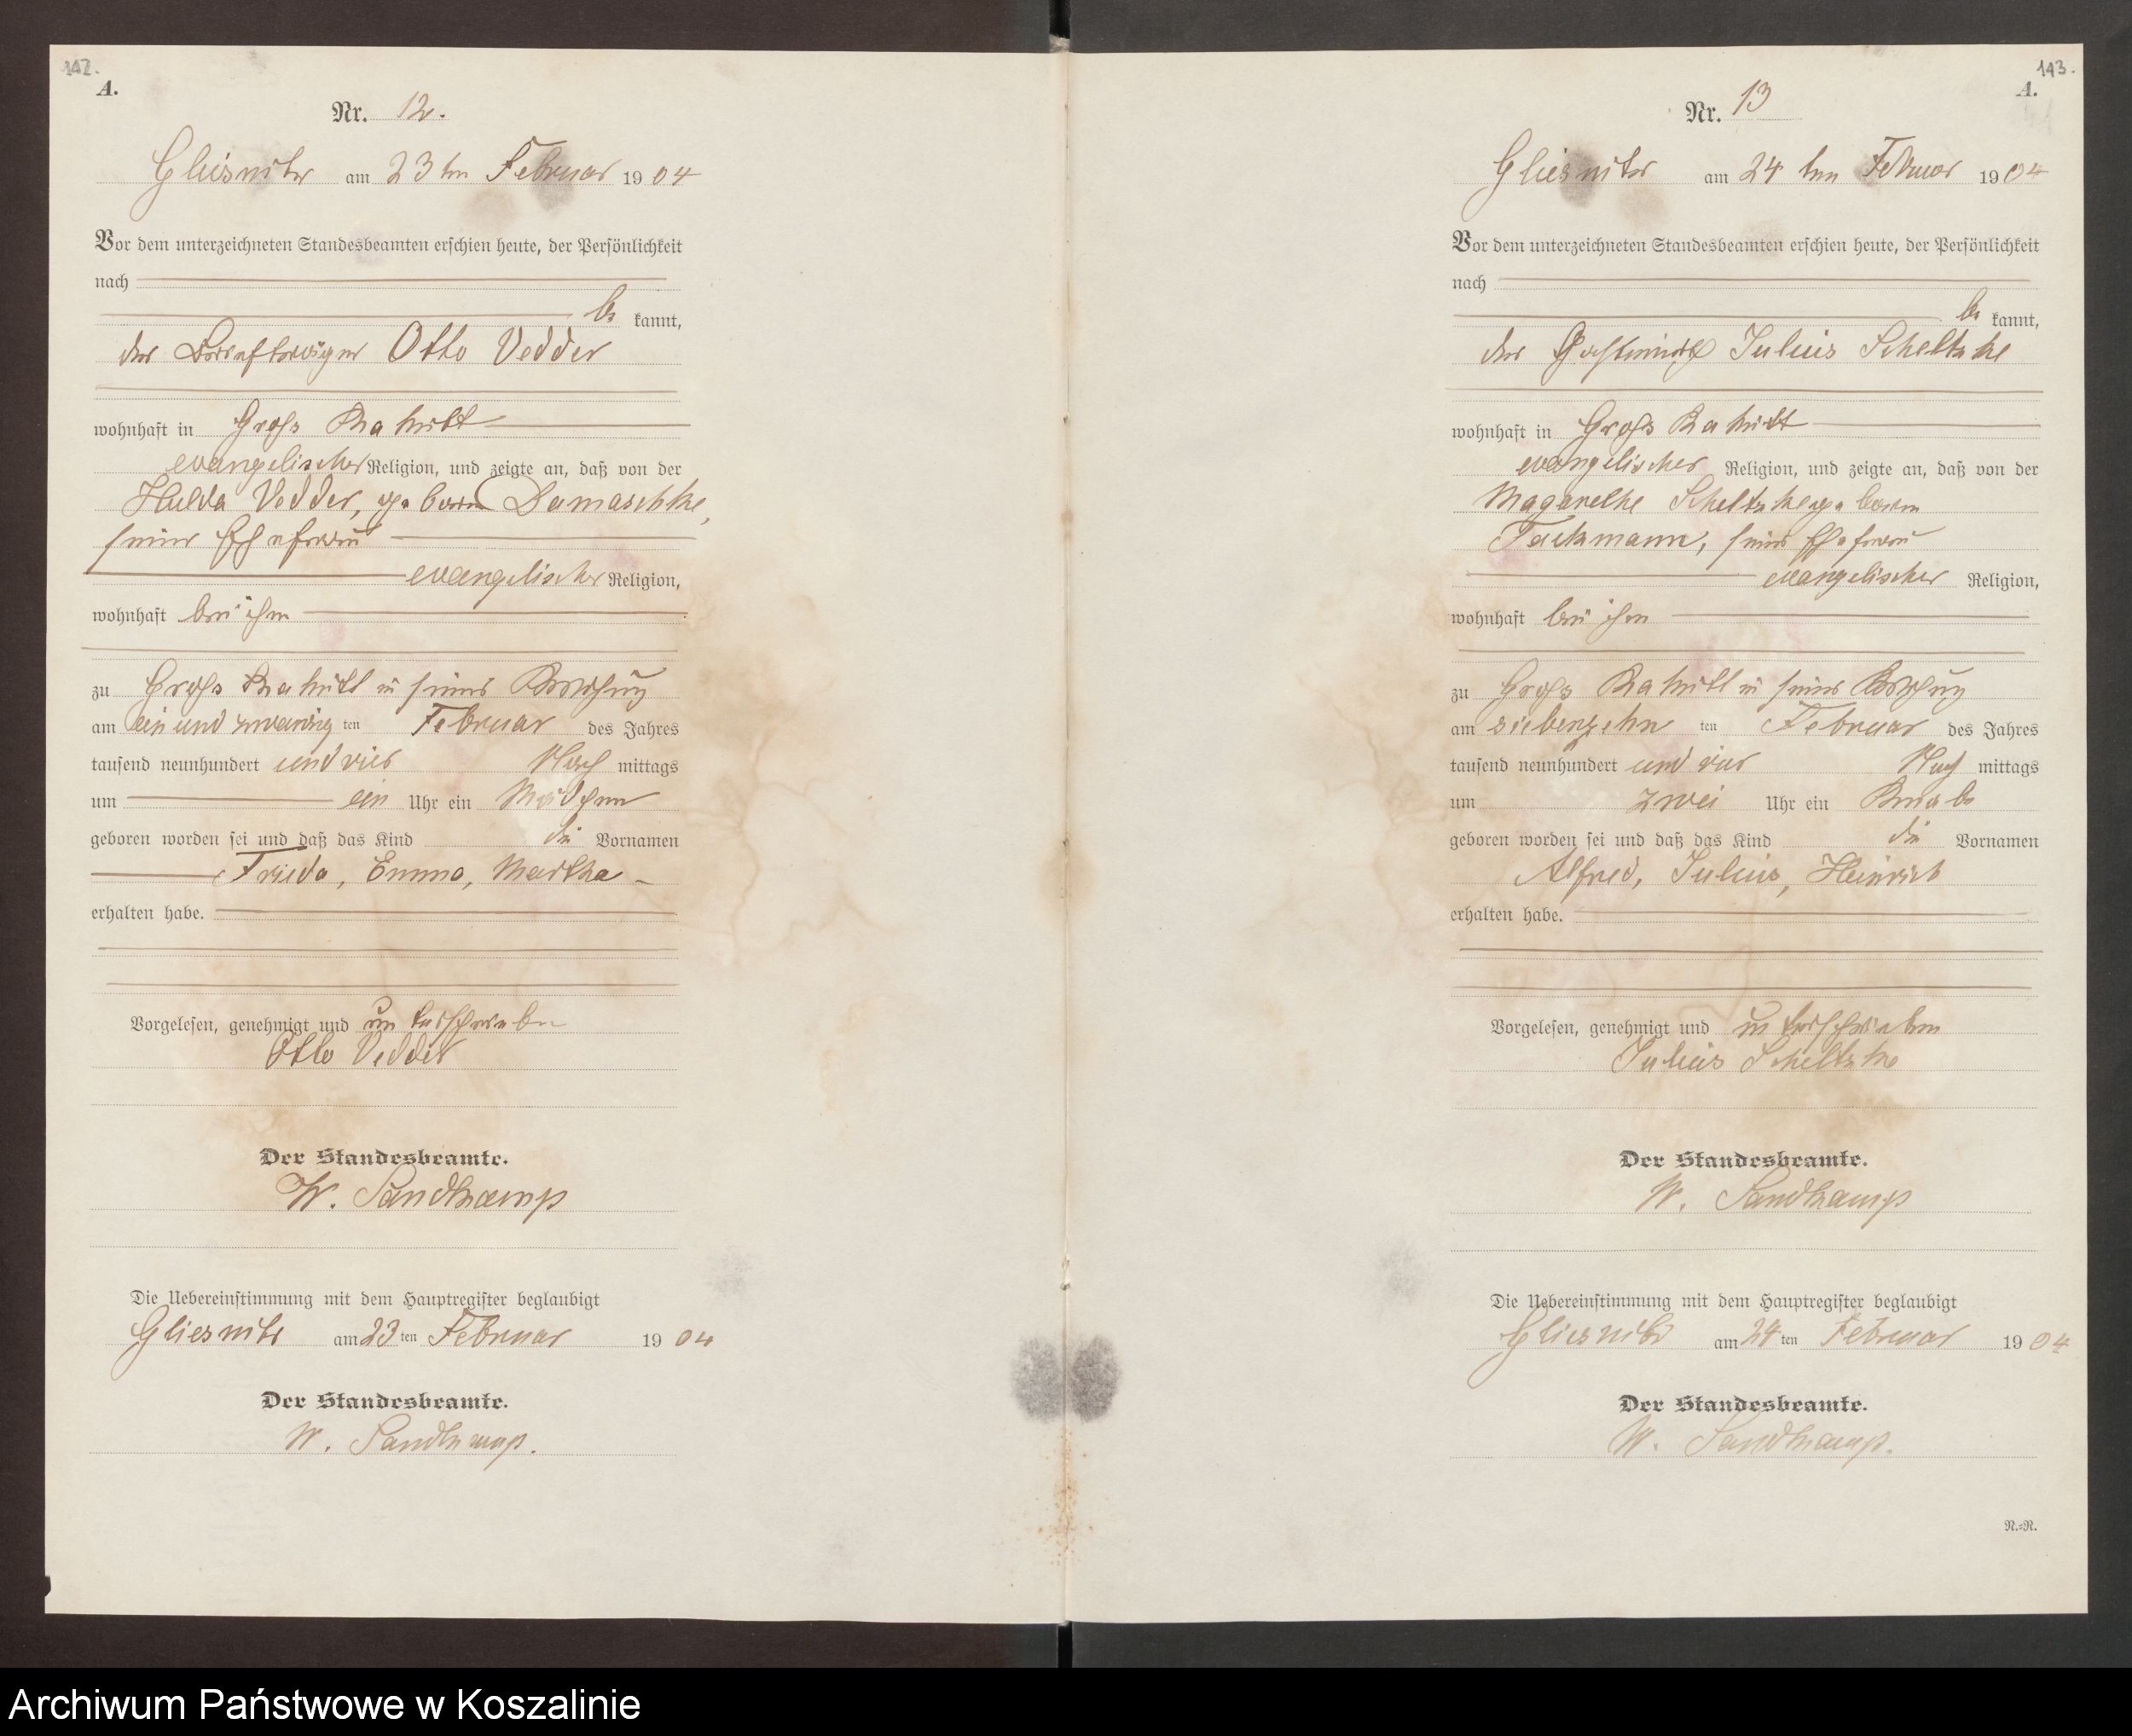 142.
A.
Nr. 12.
Gliesnitz am 23 ten Februar 1904
Vor dem unterzeichneten Standesbeamten erschien heute, der Persönlichkeit
nach
be kannt,
der Briefträger Otto Vedder
wohnhaft in Groß Rakitt
evangelischer Religion, und zeigte an, daß von der
Hulda Vedder, geborne Damaschke,
seiner Ehefrau
evangelischer Religion,
wohnhaft bei ihm
zu Groß Rakitt in seiner Wohnung
am ein und zwanzig ten Februar des Jahres
tausend neunhundert und vier Nach mittags
um ein Uhr ein Mädchen
geboren worden sei und daß das Kind die Vornamen
Frieda, Emma, Martha
erhalten habe.
Vorgelesen, genehmigt und unterschrieben
Otto Vedder
Der Standesbeamte.
W. Sandkamp
Die Uebereinstimmung mit dem Hauptregister beglaubigt
Gliesnitz am 23 ten Februar 1904
Der Standesbeamte.
W. Sandkamp.
143.
A.
Nr. 13
Gliesnitz am 24 ten Februar 1904
Vor dem unterzeichneten Standesbeamten erschien heute, der Persönlichkeit
nach
be kannt,
der Gastwirth Julius Scheltzke
wohnhaft in Groß Rakitt
evangelischer Religion, und zeigte an, daß von der
Magarethe Scheltzke geborne
Tackmann, seiner Ehefrau
evangelischer Religion,
wohnhaft bei ihm
zu Groß Rakitt in seiner Wohnung
am siebenzehn ten Februar des Jahres
tausend neunhundert und vier Nach mittags
um zwei Uhr ein Knabe
geboren worden sei und daß das Kind die Vornamen
Alfred, Julius, Heinrich
erhalten habe.
Vorgelesen, genehmigt und unterschrieben
Julius Scheltzke
Der Standesbeamte.
W. Sandkamp
Die Uebereinstimmung mit dem Hauptregister beglaubigt
Gliesnitz am 24 ten Februar 1904
Der Standesbeamte.
W. Sandkamp.
N.=N.
Archiwum Państwowe w Koszalinie